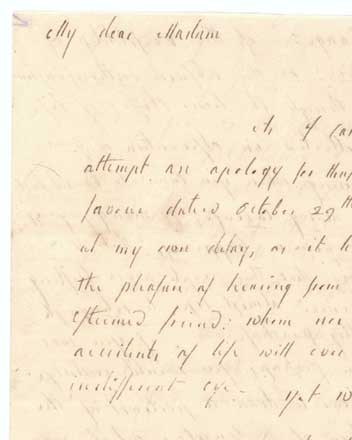 My dear Madam
As I can
attempt an apology for thus
favour dated October 29th
at my own delay, as it
the pleasure of hearing from
esteemed friend: whom nor
accidents of life will ever
indifferent eye — yet